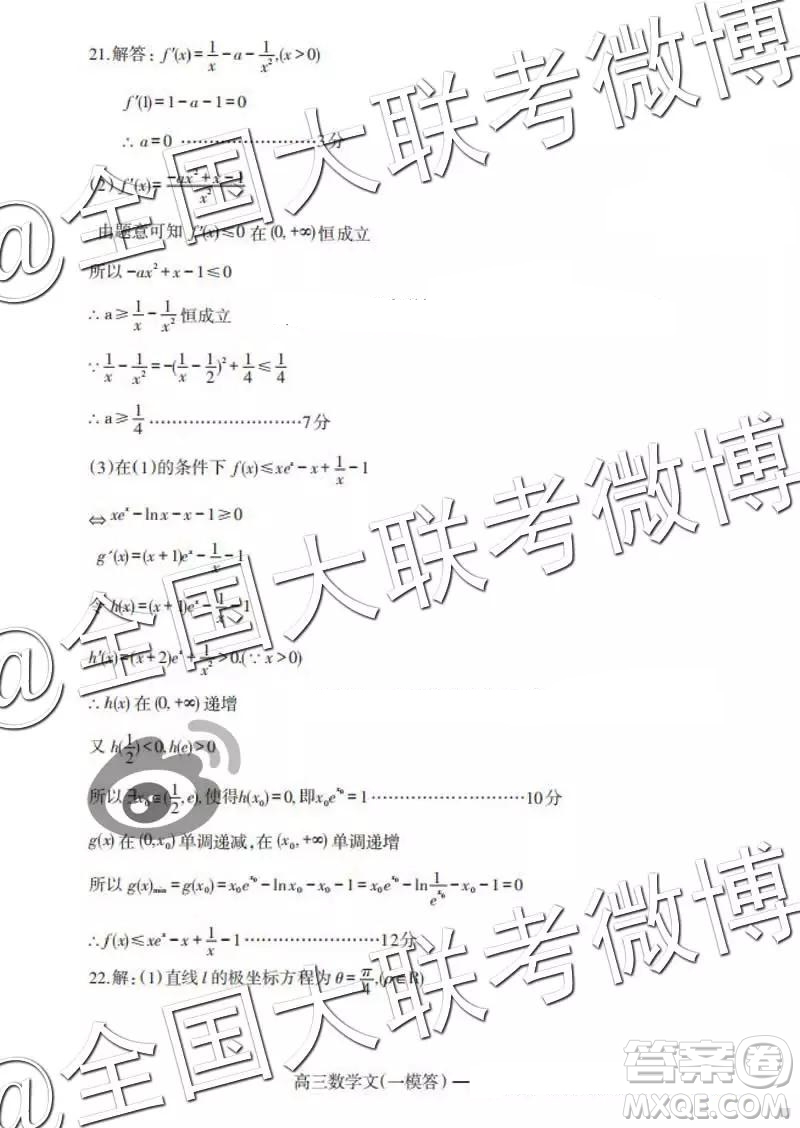 21.解答：f′(x)=1/x−a−1/x²,(x>0)
f′(1)=1−a−1=0
∴a=0 ························3分
(2)f′(x)=(−ax²+x−1)/x²
由题意可知 f′(x)≤0 在 (0,+∞) 恒成立
所以 −ax²+x−1≤0
∴a≥1/x−1/x² 恒成立
∵1/x−1/x²=−(1/x−1/2)²+1/4≤1/4
∴a≥1/4 ···························7分
(3)在(1)的条件下 f(x)≤xeˣ−x+1/x−1
⇔ xeˣ−lnx−x−1≥0
g′(x)=(x+1)eˣ−1/x−1
令h(x)=(x+1)eˣ−1/x−1
h′(x)=(x+2)eˣ+1/x²>0.(∵x>0)
∴h(x) 在 (0,+∞) 递增
又 h(1/2)<0,h(e)>0
所以 ∃x₀∈(1/2,e),使得h(x₀)=0,即x₀e^{x₀}=1 ···························10分
g(x) 在 (0,x₀) 单调递减,在 (x₀,+∞) 单调递增
所以 g(x)min=g(x₀)=x₀e^{x₀}−lnx₀−x₀−1=x₀e^{x₀}−ln1/e^{x₀}−x₀−1=0
∴f(x)≤xeˣ−x+1/x−1 ························12分
22.解：(1)直线 l 的极坐标方程为 θ=π/4,(ρ∈R)
高三数学文(一模答) —
@全国大联考微博
@全国大联考微博
@全国大联考微博
答案卷
MXQE.COM